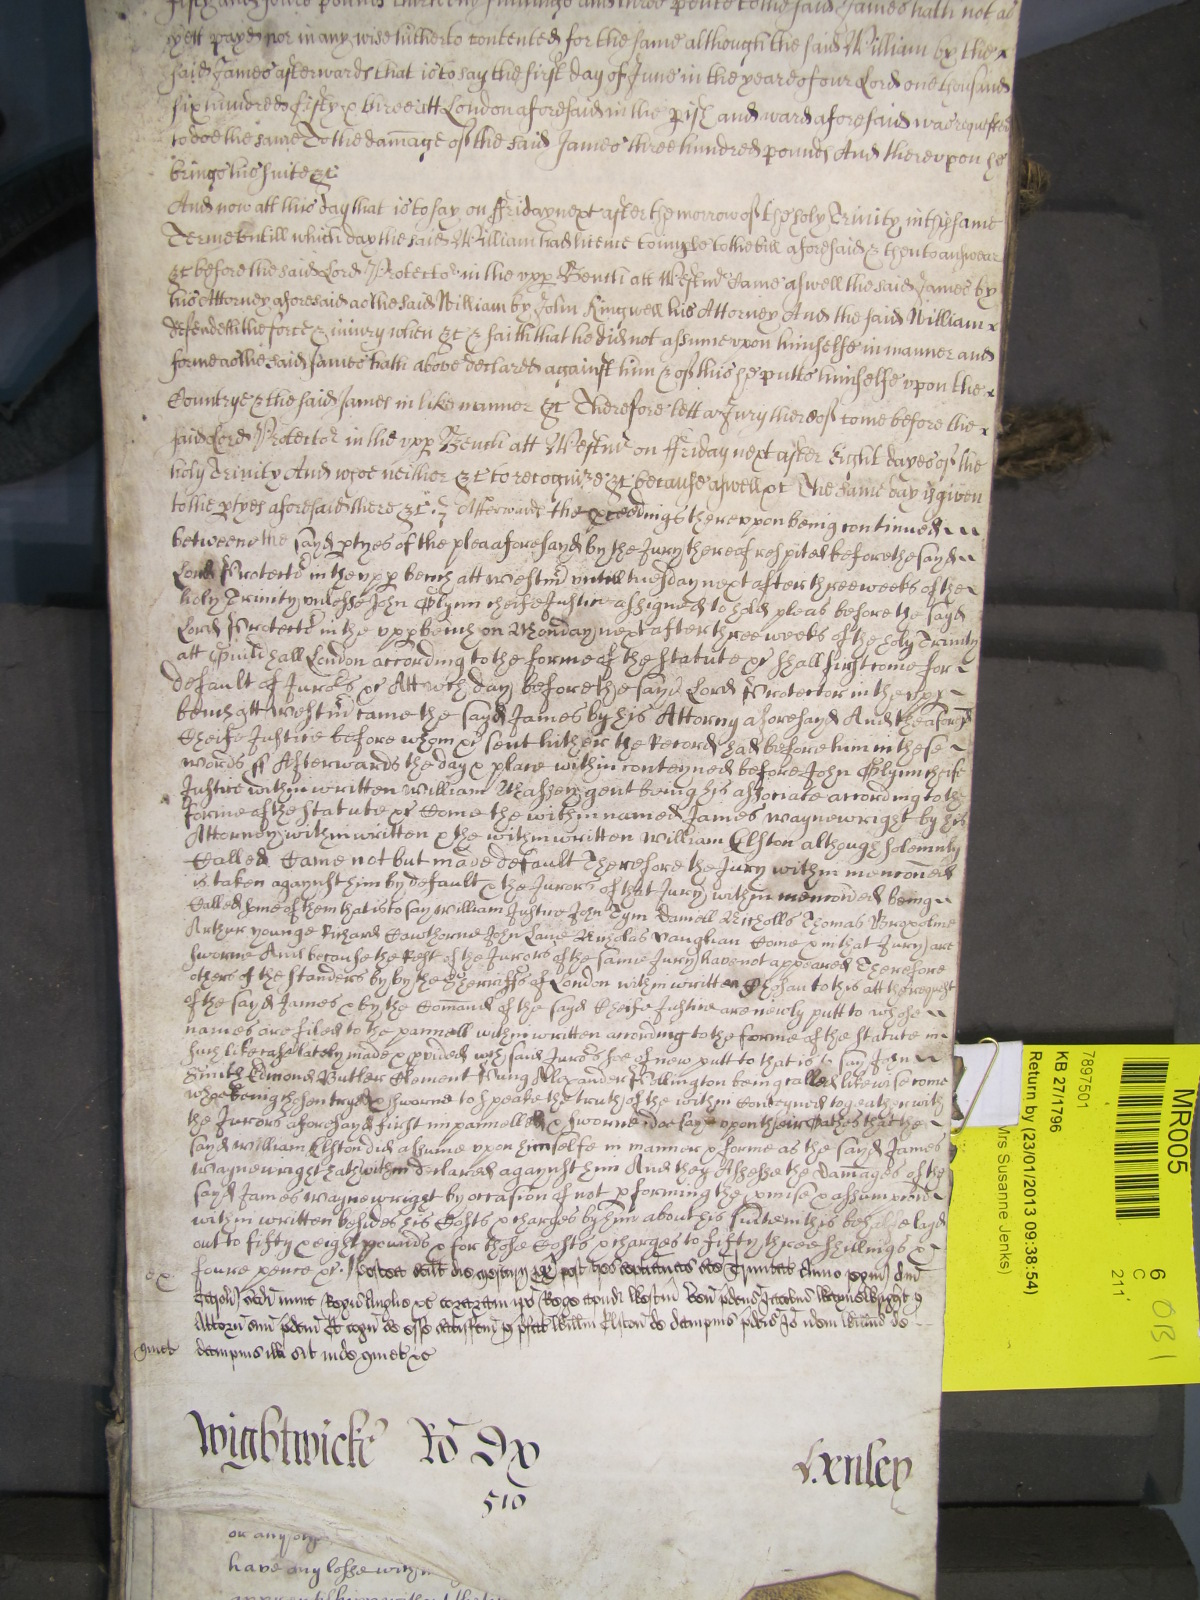 fifty and foure pounds thirteene shillings and three pence to the said James hath not as
yett payd nor in any wise hitherto contented for the same although the said William by the x
said James afterwards that is to say the first day of June in the yeare of our Lord one thousand
six hundred fifty & three att London aforesaid in the pish and ward aforesaid was requested
to doe the same To the damage of the said James three hundred pounds And thereupon he
brings his suite &c
And now att this day that is to say on ffriday next after the morrow of the holy Trinity in this same
Terme untill which day the said William had licence to imple to the bill aforesaid & then to answear
&c before the said Lord Protector in the upp Bench att Westmr came aswell the said James by
his Attorney aforesaid as the said William by John Kingwell his Attorney And the said William x
defendeth the force & iniury when &c & saith that he did not assume upon himselfe in manner and
forme as the said James hath above declared against him & of this he putts himselfe upon the x
Countrye & the said James in like manner &c Therefore lett a Jury thereof come before the x
said Lord Protector in the upp Bench att Westmr on ffriday next after Eight dayes of the
holy Trinity And whoe neither &c to recognize &c because aswell &c The same day is given
to the ptyes aforesaid there &c Afterwards the pceedings thereupon being continued
betweene the sayd ptyes of the plea aforesayd by the Jury thereof respited before the sayd
Lord Protector in the upp bench att Westmr untill tuesday next after three weeks of the
holy Trinity unlesse John Glynn cheife Justice assigned to hold pleas before the sayd
Lord Protector in the upp bench on Monday next after three weeks of the holy Trinity
att Guildhall London according to the forme of the statute &c shall first come for
default of Jurors &c Att wch day before the sayd Lord Protector in the upp
bench att Westmr came the sayd James by his Attorny aforesayd And the aforesd
Cheife Justice before whom &c sent hither the Record had before him in these
words ss Afterwards the day & place within conteyned before John Glynn cheife
Justice within written William Massey gent being his associate according to the
forme of the statute &c Come the within named James Waynewright by his
Attorney within written & the within written William Elston although solemnly
Called Came not but made default Therefore the Jury within menconed
is taken agaynst him by default & the Jurors of that Jury within menconed being
Called some of them that is to say William Justice John Tym Daniell Nicholls Thomas
Arthur younge Richard Hawthorne John Lane Nicholas Vaughan Come & in that Jury are
sworne And because the Rest of the Jurors of the same Jury have not appeared Therefore
others of the standers by by the Sherriffs of London within written Chosen to this att the request
of the sayd James & by the Comand of the sayd Cheife Justice are newly putt to whose
names are filed to the pannell within written according to the forme of the statute in
such like case lately made & pvided wch said Jurors soe of new putt to that is to say John
Smith Edmond Butler Clement Pung Alexander Pollington being called likewise come
whoe being chosen tryed & sworne to speake the truth of the within Conteyned togeather with
the Jurors aforesayd first impannelled & sworne doe say upon their Oathes that the
sayd William Elston did assume upon himselfe in manner & forme as the sayd James
Waynewright hath within declared agaynst him And they Assesse the damages of the
sayd James Waynewright by occasion of not pforming the pmise & assumpcon
within written besides his Costs & charges by him about his suite in this behalfe layd
out to fifty & eight pounds & for those Costs & charges to fifty three shillings &
foure pence &c Postea scilt die
Regni Anglie &c coram Rege apud Westm ven pdcus Jacobus Waynewright p
Attorn suu pdcm Et cogn se esse satisfcm p pfat Willm Elston de dampnis pdcis Io idem Willms de
dampnis ill sit inde quiet &c
quiet
Wightwicke Ro Dx
510
Lxnley
or any
have any losse within
MR005
6
C
211'
OB1
7897501
KB 27/1796
Return by (23/01/2013 09:38:54)
Mrs Susanne Jenks)